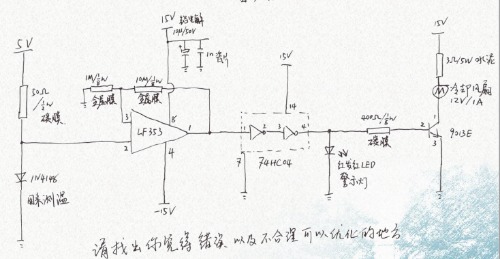 15V
铝电解
10μ/50V
5V
1n
1M/¼W
金属膜
10M/¼W
金属膜
3
8
LF353
1
2
4
-15V
1N4148
用来测温
碳膜
15V
14
1
2
3
4
7
74HC04
红发红LED
警示灯
碳膜
15V
3Ω/5W 水泥
冷却风扇
12V/1A
1
2
3
9013E
请找出你觉得错误以及不合理可以优化的地方